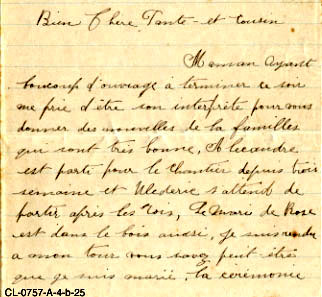 Bien Chere Tante et Cousin
Maman ayant
boucoup d'ouvrage à terminer ce soir
me prie d'être son interprète pour vous
donner des nouvelles de la familles
qui sont très bonne, Alicandre
est parti pour le chantier depuis trois
semaine et Mederic s'attend de
partir après les Rois, Le Marie de Rose
est dans le bois aussi, je suis rendu
a mon tour vous savez peut être
que je suis marié, la cérémonie
CL-0757-A-4-b-25